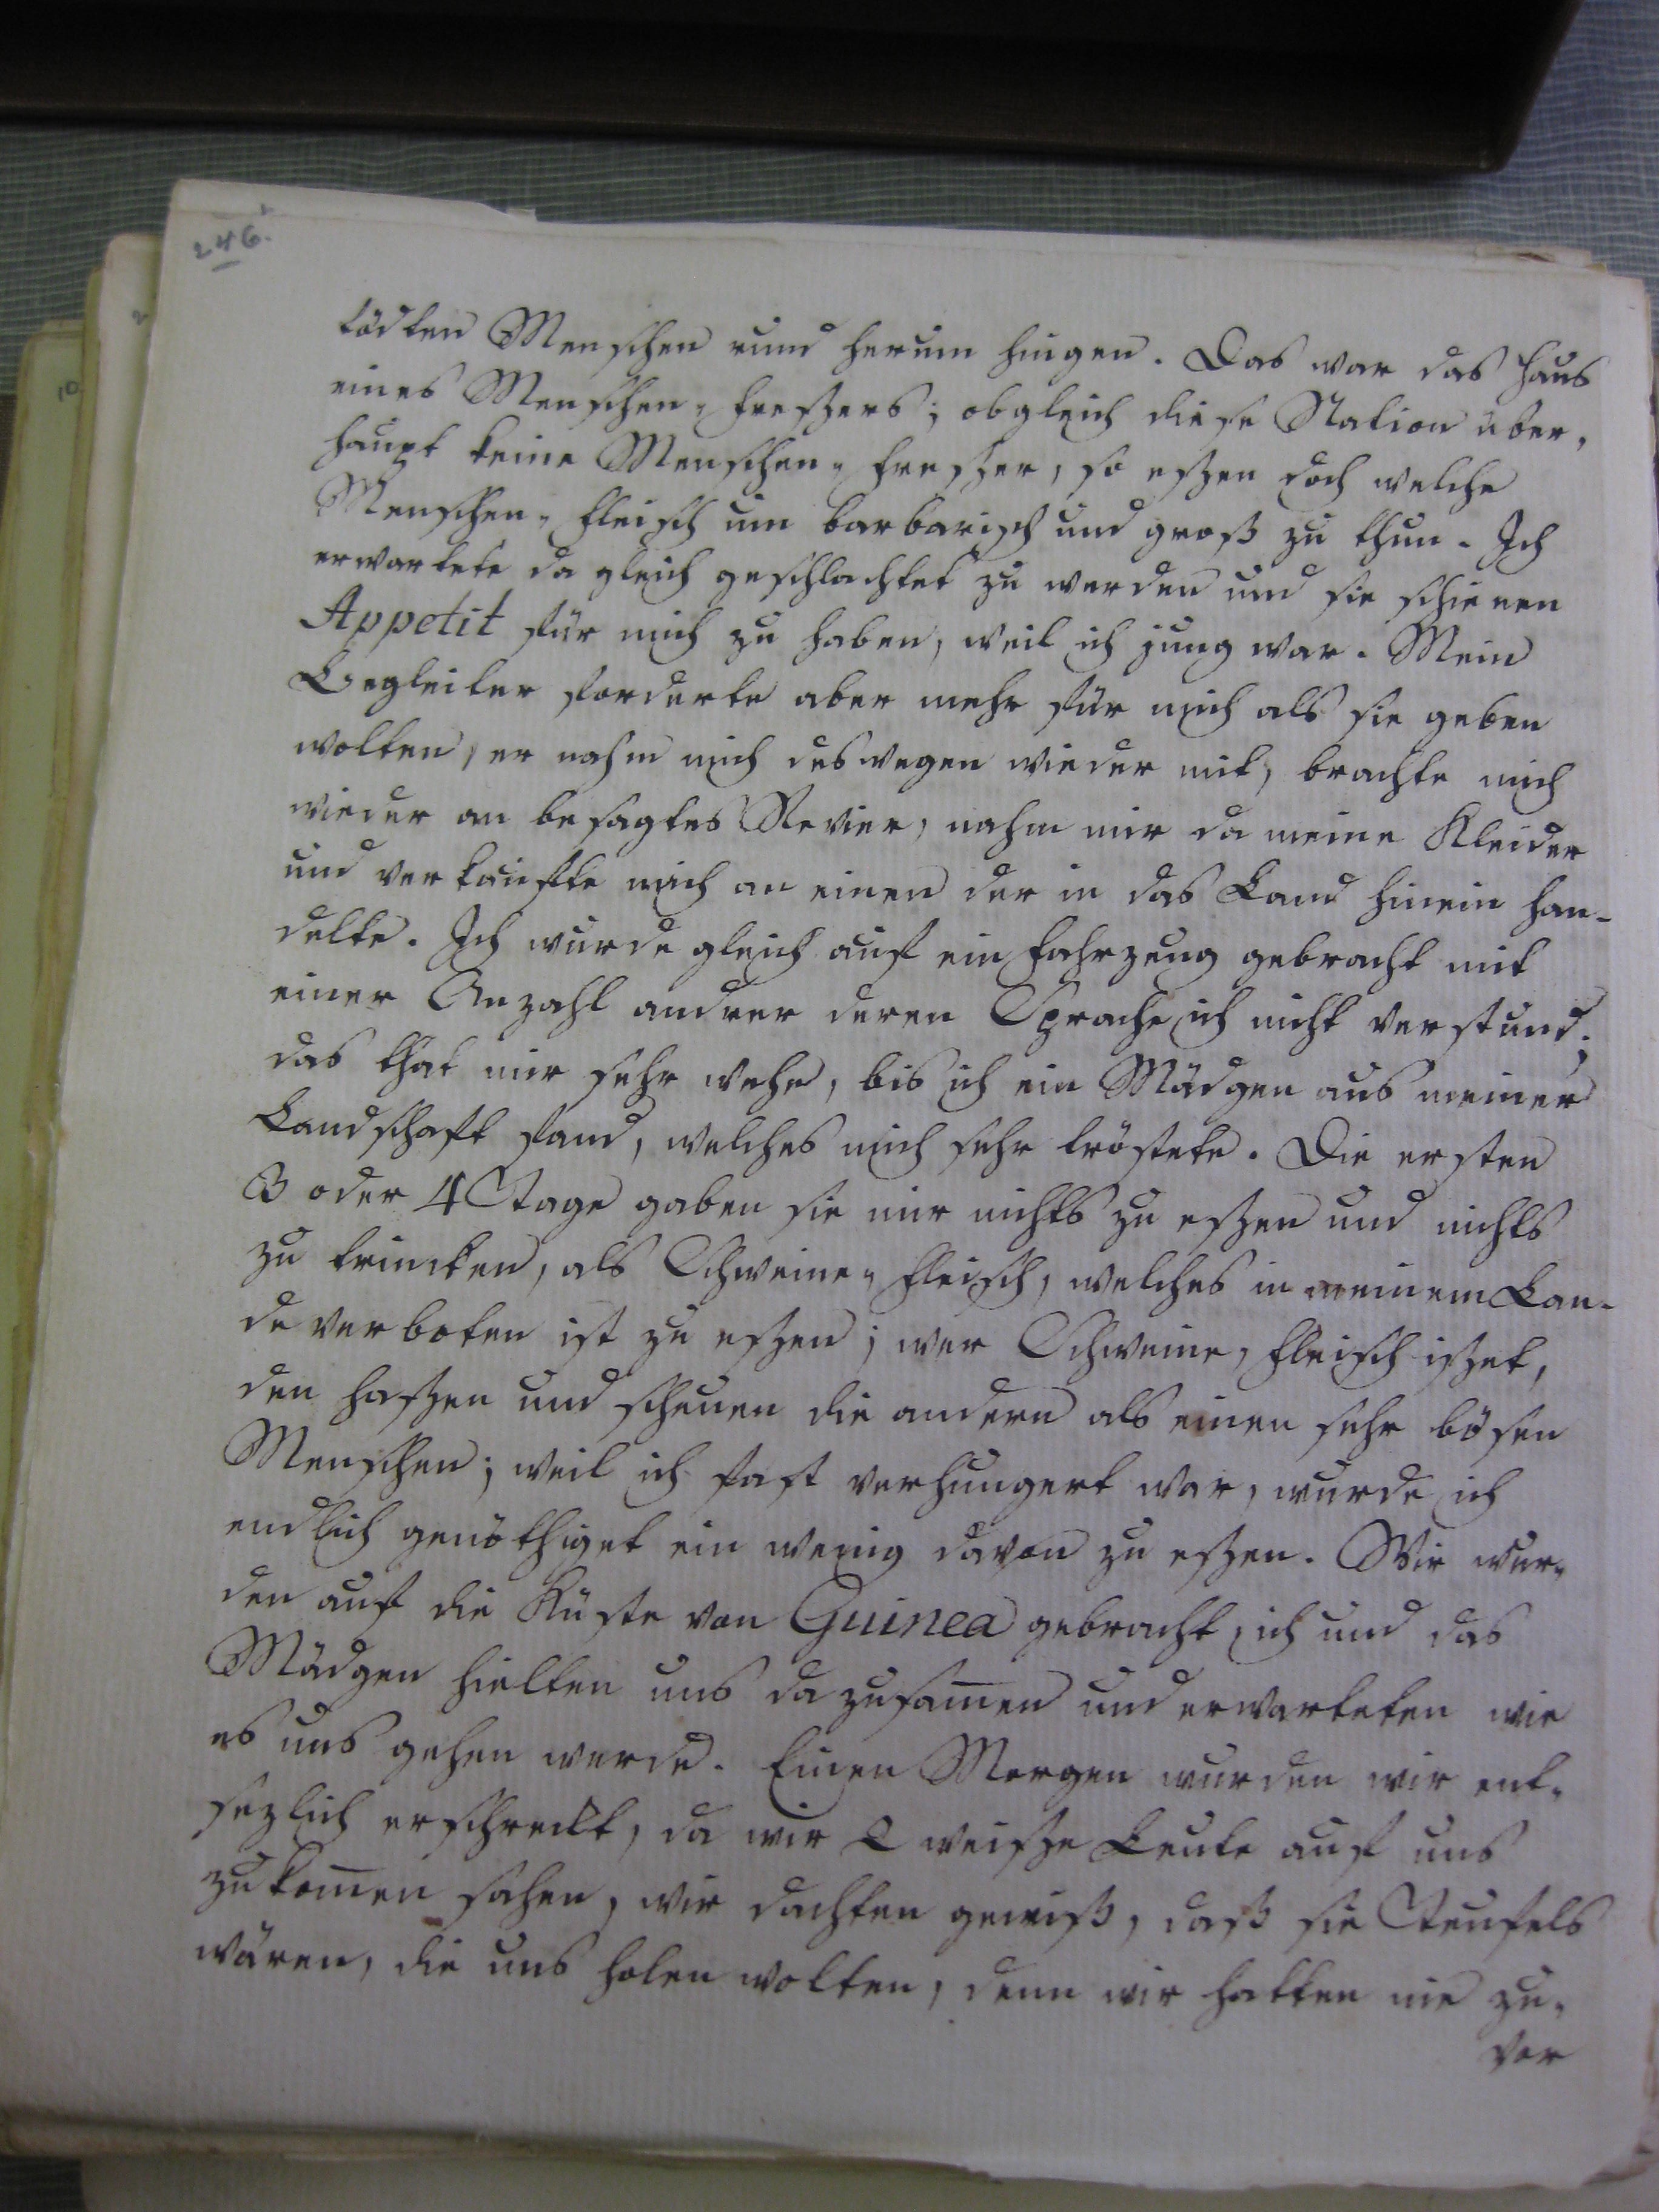 246.
tödten Menschen rund herum hingen. Das war das Haus
eines Menschen-Freßers; obgleich diese Nation über-
haupt keine Menschen-Freßer, so eßen doch welche
Menschen-Fleisch um barbarisch und groß zu thun. Ich
erwartete da gleich geschlachtet zu werden und sie schienen
Appetit für mich zu haben, weil ich jung war. Mein
Begleiter forderte aber mehr für mich als sie geben
wolten, er nahm mich deswegen wieder mit, brachte mich
wieder an besagtes Revier, nahm mir da meine Kleider
und verkaufte mich an einen der in das Land hinein han-
delte. Ich wurde gleich auf ein Fahrzeug gebracht mit
einer Anzahl andrer deren Sprache ich nicht verstund;
das that mir sehr wehe, bis ich ein Mädgen aus meiner
Landschaft fand, welches mich sehr tröstete. Die ersten
3 oder 4 Tage gaben sie mir nichts zu eßen und nichts
zu trincken, als Schweine-Fleisch, welches in meinem Lan-
de verboten ist zu eßen; wer Schweine-Fleisch ißet,
den haßen und scheuen die andern als einen sehr bösen
Menschen; weil ich fast verhungert war, wurde ich
endlich genöthiget ein wenig davon zu eßen. Wir wur-
den auf die Küste von Guinea gebracht, ich und das
Mädgen hielten uns da zusam̅en und erwarteten wie
es uns gehen werde. Einen Morgen wurden wir ent-
sezlich erschreckt, da wir 2 weiße Leute auf uns
zukom̅en sahen, wir dachten gewiß, daß sie Teufels
wären, die uns holen wolten, denn wir hatten nie zu-
vor